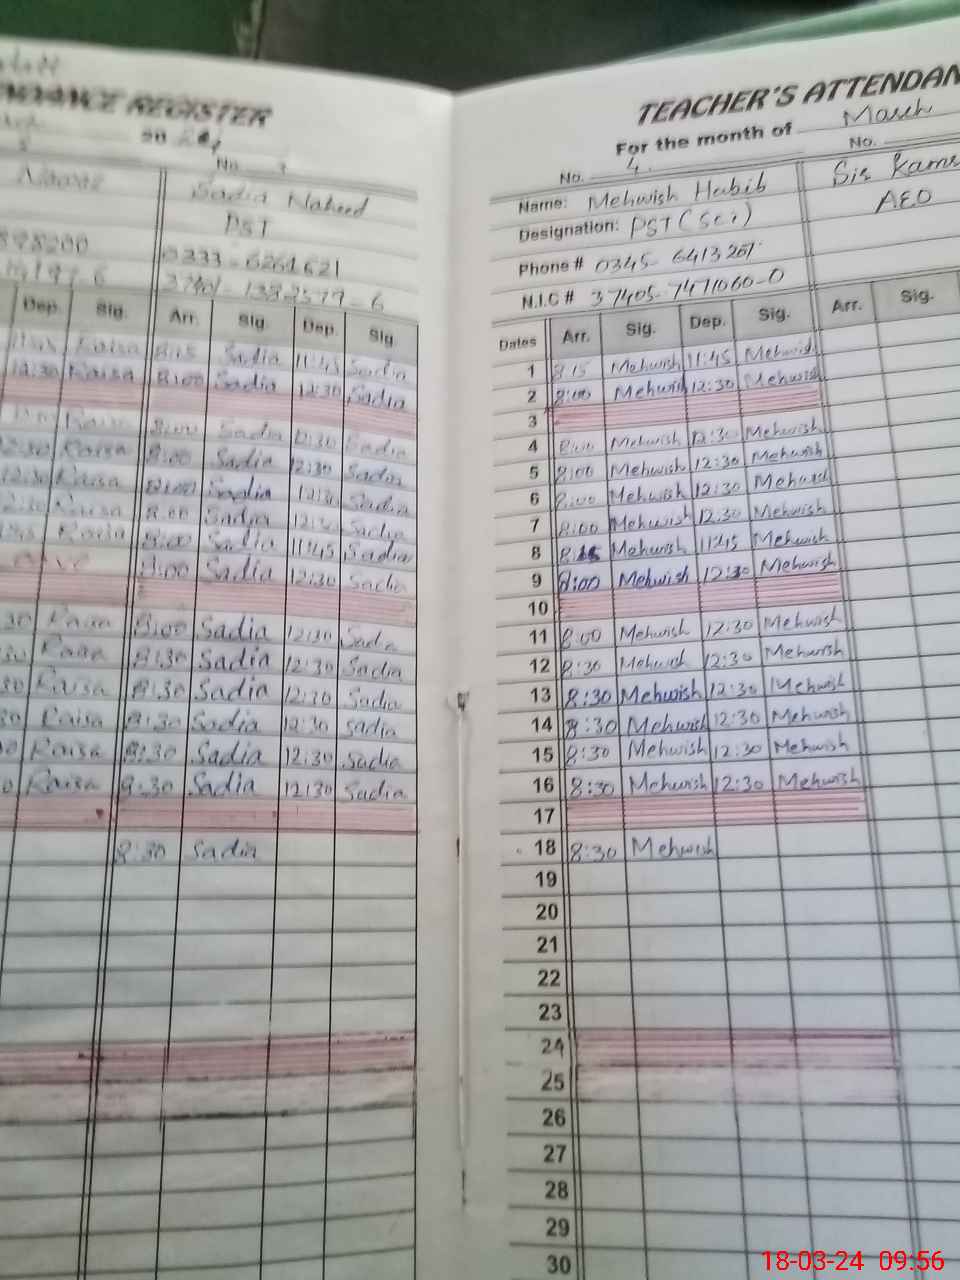 TEACHER'S ATTENDAN
For the month of March
NDANCE REGISTER
20
No.
Sadia Naheed
PST
0333-6261621
Dep. Sig. Arr. Sig. Dep. Sig.
Raisa 8:15 Sadia 11:45 Sadia
12:30 Raisa 8:00 Sadia 12:30 Sadia
Raisa 8:00 Sadia 12:30 Sadia
12:30 Raisa 8:00 Sadia 12:30 Sadia
12:30 Raisa 8:00 Sadia 12:30 Sadia
Raisa 8:00 Sadia 12:30 Sadia
Raisa 8:00 Sadia 11:45 Sadia
8:00 Sadia 12:30 Sadia
30 Raisa 8:00 Sadia 12:30 Sadia
30 Raisa 8:30 Sadia 12:30 Sadia
30 Raisa 8:30 Sadia 12:30 Sadia
30 Raisa 8:30 Sadia 12:30 Sadia
0 Raisa 8:30 Sadia 12:30 Sadia
0 Raisa 8:30 Sadia 12:30 Sadia
8:30 Sadia
No. 4 No.
Name: Mehwish Habib Sir Kamr
Designation: PST (Sci) AEO
Phone # 0345-6413261
N.I.C # 37405-7471060-0
Dates Arr. Sig. Dep. Sig. Arr. Sig.
1 8:15 Mehwish 11:45 Mehwish
2 8:00 Mehwish 12:30 Mehwish
3
4 8:00 Mehwish 12:30 Mehwish
5 8:00 Mehwish 12:30 Mehwish
6 8:00 Mehwish 12:30 Mehwish
7 8:00 Mehwish 12:30 Mehwish
8 8:15 Mehwish 11:45 Mehwish
9 8:00 Mehwish 12:30 Mehwish
10
11 8:00 Mehwish 12:30 Mehwish
12 8:30 Mehwish 12:30 Mehwish
13 8:30 Mehwish 12:30 Mehwish
14 8:30 Mehwish 12:30 Mehwish
15 8:30 Mehwish 12:30 Mehwish
16 8:30 Mehwish 12:30 Mehwish
17
18 8:30 Mehwish
19
20
21
22
23
24
25
26
27
28
29
30
18-03-24 09:56